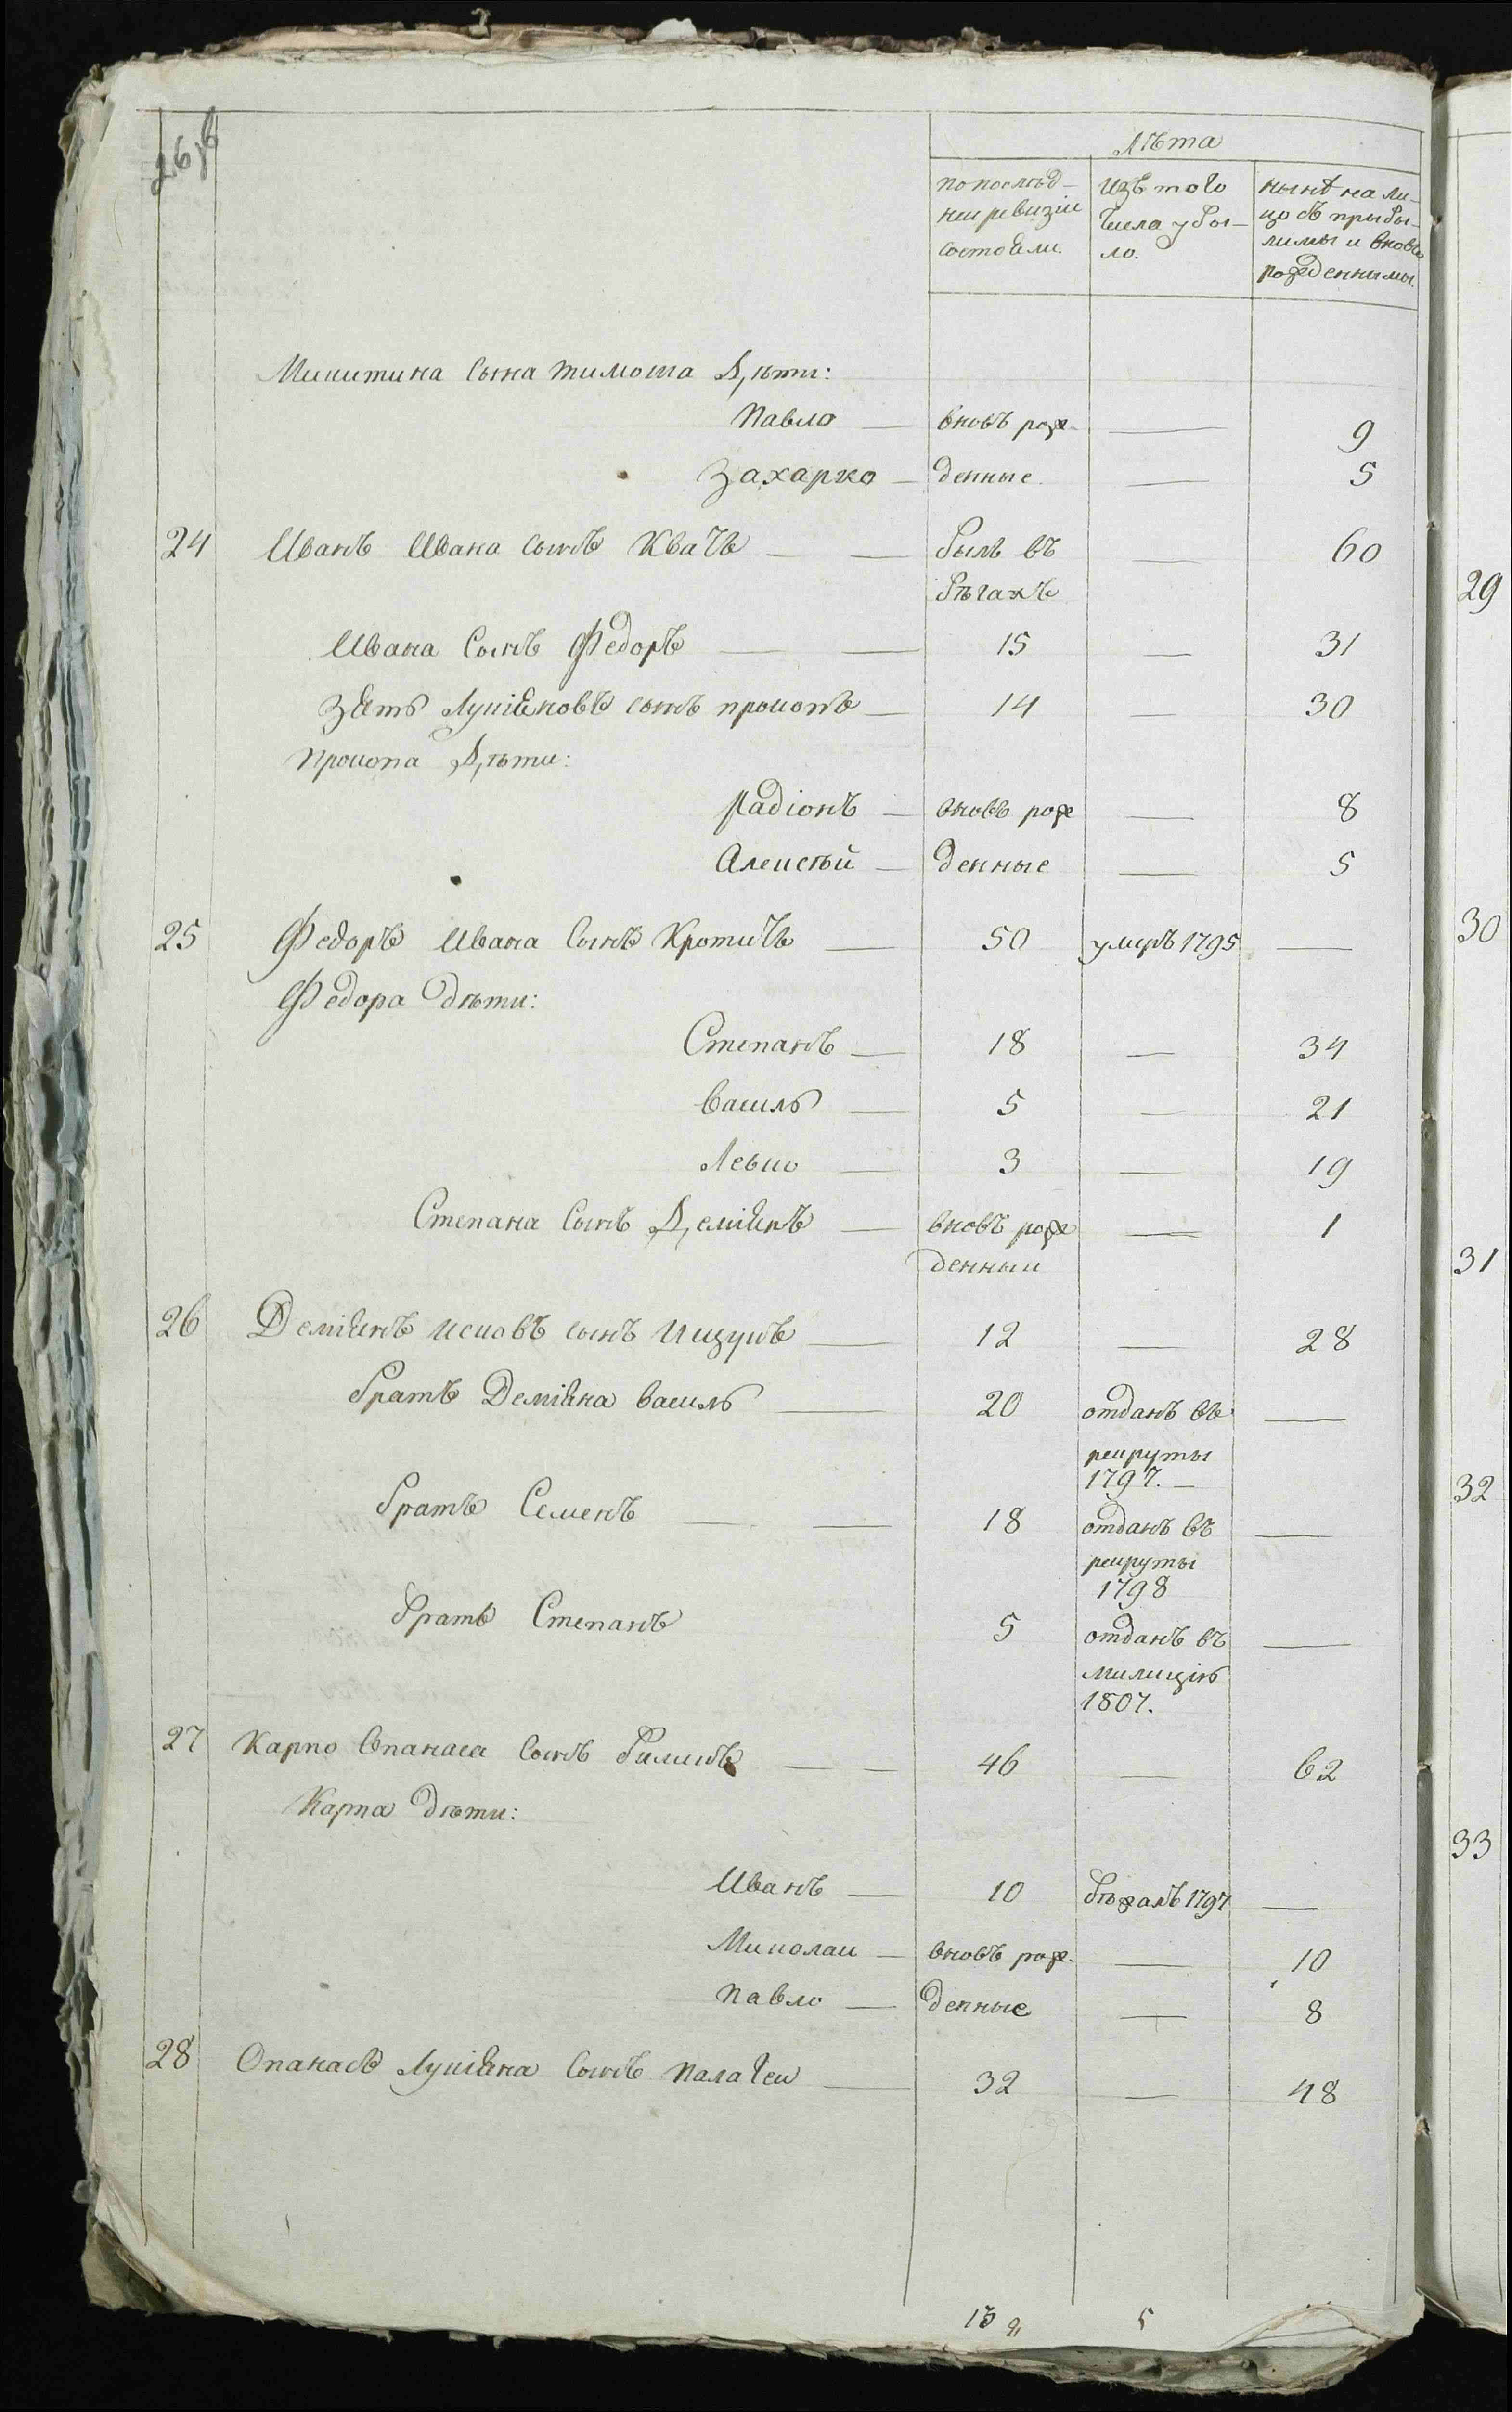 Лѣта
по послѣд-
неи ревизіи
состояли.
изъ того
числа убы-
ло.
нынѣ на ли-
цо съ прибы-
лими и вновь
рожденними.
Микитина сына Тимоша Дѣти:
Павло — вновь рож- — 9
Захарко — денные — 5
24 Иванъ Ивана сынъ Квачъ — — былъ въ — 60
бѣгахъ
Ивана сынъ Федоръ — — 15 — 31
Зять Лукіяновъ сынъ Прокопъ — 14 — 30
Прокопа Дѣти:
Радіонъ — вновь рож — 8
Алексѣй — денные — 5
25 Федоръ Ивана сынъ Кротичъ — 50 умеръ 1795 —
Федора дѣти:
Степанъ — 18 — 34
Василь — 5 — 21
Левко — 3 — 19
Степана сынъ Деміянъ — вновь рож — 1
денныи
26 Деміянъ Исковъ сынъ — 12 — 28
братъ Деміяна Василь — 20 отданъ въ —
рекруты
1797. —
братъ Семенъ — — 18 отданъ въ —
рекруты
1798
братъ Степанъ 5 отданъ въ —
милицію
1807.
27 Карпо Опанаса сынъ — — 46 — 62
Карпа дѣти:
Иванъ — 10 бѣжалъ 1797 —
Миколаи — вновь рож- — 10
Павло — денные — 8
28 Опанасъ Лукіяна сынъ Палачеи — 32 — 48
5
29
30
31
32
33